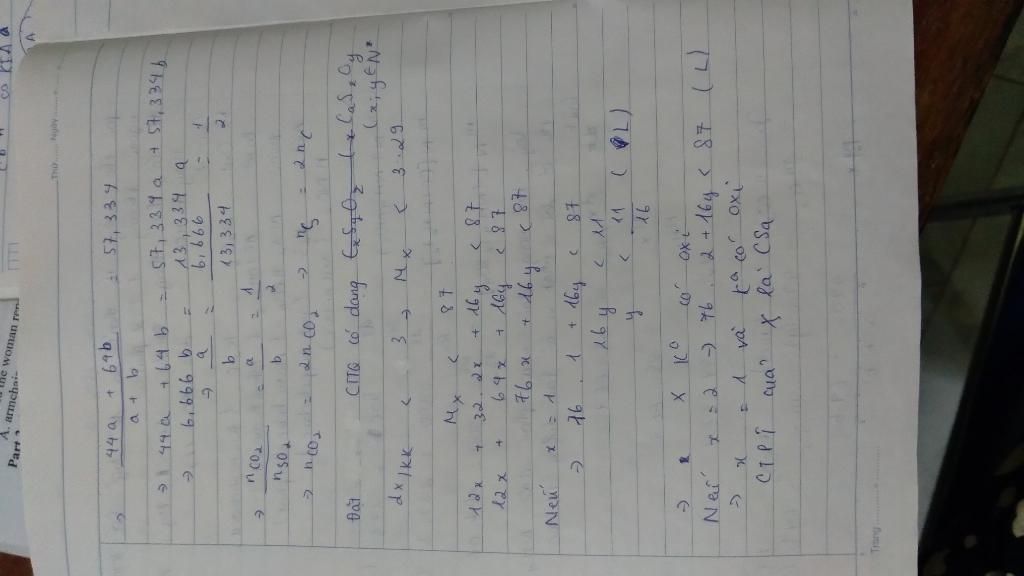 Thứ ..... Ngày .....
⇒ 44a + 64b / a + b = 57,334
⇒ 44a + 64b = 57,334a + 57,334b
⇒ 6,666b = 13,334a
⇒ a/b = 6,666/13,334 = 1/2
⇒ nCO2/nSO2 = a/b = 1/2
⇒ nCO2 = 2nCO2 ⇒ nS = 2nC
Đặt CTTQ có dạng CxS2xOy
(x, y ∈ N*
dx/kk < 3 ⇒ Mx < 3.29
Mx < 87
12x + 32.2x + 16y < 87
12x + 64x + 16y < 87
76.x + 16y < 87
Nếu x = 1
⇒ 76.1 + 16y < 87
16y < 11
y < 11/16 (L)
⇒ X K° có oxi
Nếu x = 2 ⇒ 76.2 + 16y < 87 (L)
⇒ x = 1 và K° có oxi
CTPT của X là CS2
Trang
A. armchair
the woman
Part